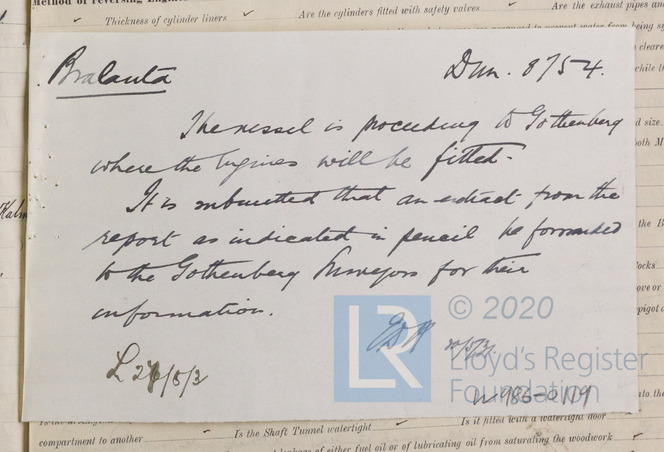 Method of reversing Engines
Thickness of cylinder liners ✓ Are the cylinders fitted with safety valves ✓ Are the exhaust pipes and
Bralanta
Dun. 8754.
The vessel is proceeding to Gothenberg
where the Engines will be fitted.
It is submitted that an extract from the
report as indicated in pencil be forwarded
to the Gothenberg Surveyors for their
information.
© 2020
LR
Lloyd's Register
Foundation
W986-0179
Is the Shaft Tunnel watertight ✓ Is it fitted with a watertight door
compartment to another
leakage of either fuel oil or of lubricating oil from saturating the woodwork ✓